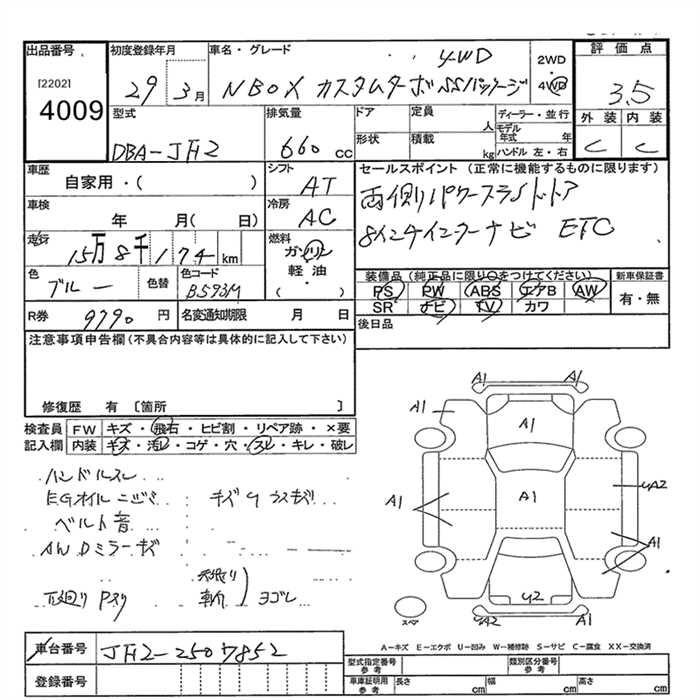 出品番号 初度登録年月 車名・グレード 評価点
[2202] 4009
29 3月 NBOX カスタムターボSSパッケージ 4WD
2WD 4WD
3.5
外装 内装
C C
型式 排気量 ドア 定員 人 ディーラー・並行
DBA-JF2 660 cc 形状 積載 kg モデル年式 年
ハンドル 左・右
車歴 シフト セールスポイント (正常に機能するものに限ります)
自家用・( ) AT 両側パワースライドドア
車検 冷房 8インチインターナビ ETC
年 月( 日) AC
走行 燃料
15万8千174 km ガソリン 軽油 ( ・ )
色 色替 色コード 装備品(純正品に限り○をつけてください) 新車保証書
ブルー B593M PS PW ABS エアB AW 有・無
SR ナビ TV カワ
R券 9790 円 名変通知期限 月 日 後日品
注意事項申告欄(不具合内容等は具体的に記入して下さい)
修復歴 有 〔箇所 〕
検査員 FW キズ・飛石・ヒビ割・リペア跡・×要
記入欄 内装 キズ・汚レ・コゲ・穴・スレ・キレ・破レ
ハンドルスレ
EGオイルニジミ
ベルト音
AWDミラーキズ
下廻りPスリ
ヨゴレ
A1 A1
A1 A1
A1 A1 UA2
A1
U2
UA2 A1
スペア
A-キズ E-エクボ U-凹み W-補修跡 S-サビ C-腐食 XX-交換済
車台番号 JF2-2507852
登録番号
型式指定番号 参考 類別区分番号 参考
車庫証明用 参考 長さ cm 幅 cm 高さ cm